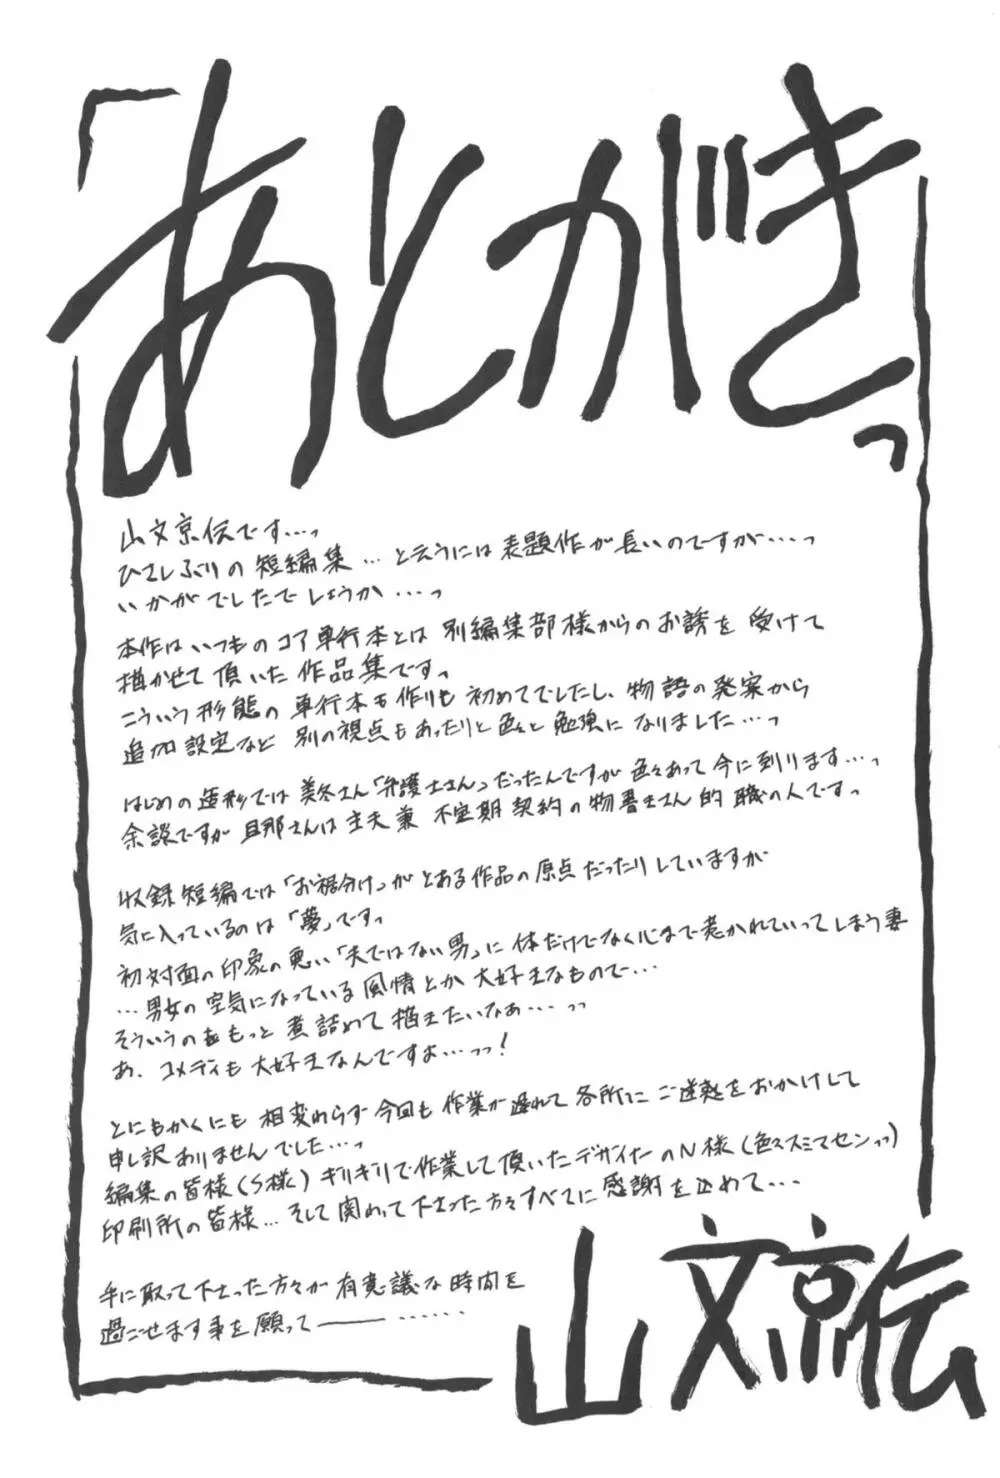 「あとがきっ
山文京伝です…っ
ひさしぶりの短編集…と云うには表題作が長いのですが…っ
いかがでしたでしょうか…っ
本作はいつものコアの単行本とは別編集部様からのお誘を受けて
描かせて頂いた作品集ですっ
こういう形態の単行本も作りも初めてでしたし、物語の発案から
追加設定など別の視点もあったりと色々と勉強になりました…っ
はじめの造形では美冬さん「弁護士さん」だったんですが色々あって今に到ります…っ
余談ですが旦那さんは主夫兼不定期契約の物書きさん的職の人ですっ
収録短編では「お裾分け」がとある作品の原点だったりしていますが
気に入っているのは「夢」ですっ
初対面の印象の悪い「夫ではない男」に体だけでなく心まで惹かれていってしまう妻
…男女の空気になっている風情とか大好きなもので…
そういうのをもっと煮詰めて描きたいなぁ…っっ
あ、コメディも大好きなんですよ…っっ!
とにもかくにも相変わらず今回も作業が遅れて各所にご迷惑をおかけして
申し訳ありませんでした…っ
編集の皆様(S様)ギリギリで作業して頂いたデザイナーのN様(色々スミマセンっっ)
印刷所の皆様…そして関わって下さった方々すべてに感謝を込めて…
手に取って下さった方々が有意議な時間を
過ごせます事を願って――……
山文京伝